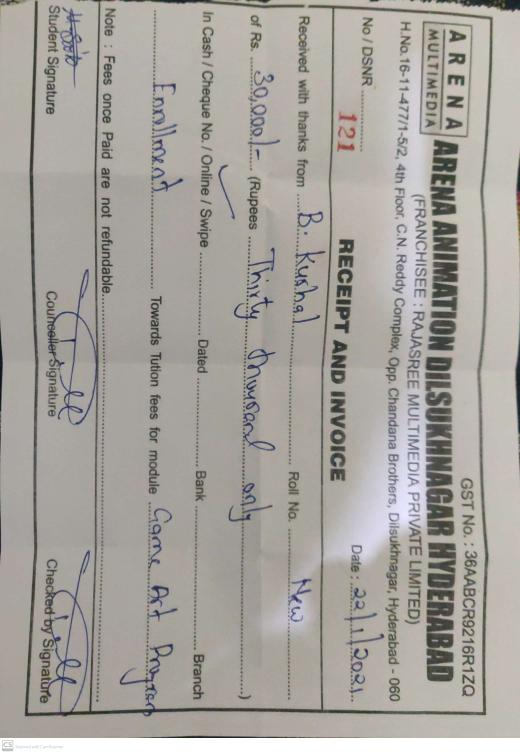 GST No. : 36AABCR9216R1ZQ
ARENA
MULTIMEDIA
ARENA ANIMATION DILSUKHNAGAR HYDERABAD
(FRANCHISEE : RAJASREE MULTIMEDIA PRIVATE LIMITED)
H.No.16-11-477/1-5/2, 4th Floor, C.N. Reddy Complex, Opp. Chandana Brothers, Dilsukhnagar, Hyderabad - 060
No / DSNR 121
Date : 22/1/2021
RECEIPT AND INVOICE
Received with thanks from B. Kushal Roll No. New
of Rs. 30,000/- (Rupees Thirty thousand only)
In Cash / Cheque No. / Online / Swipe Dated Bank Branch
Enrollment Towards Tution fees for module Game Art Program
Note : Fees once Paid are not refundable.
Student Signature Counceller Signature Checked by Signature
CS Scanned with CamScanner